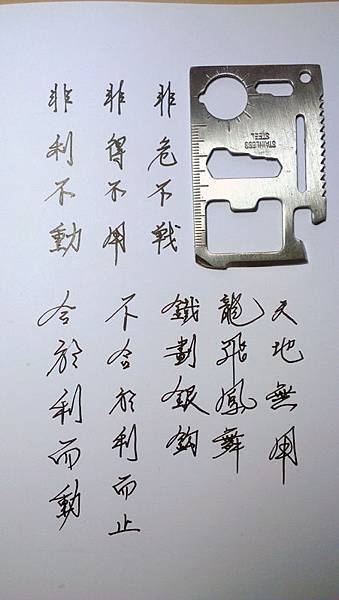 STAINLESS
STEEL
非危不戰
非得不用
非利不動
天地無用
龍飛鳳舞
鐵劃銀鈎
不合於利而止
合於利而動